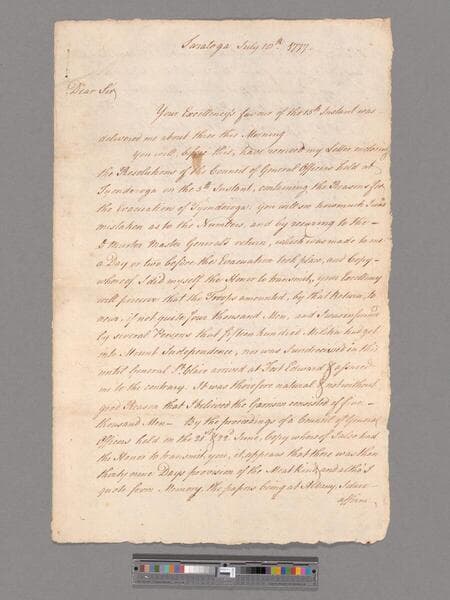 Saratoga July 18th 1777.
Dear Sir
Your Excellency's favour of the 15th Instant was
delivered me about three this Morning
You will before this, have received my Letter inclosing
the Resolutions of the Council of General Officers held at
Tyonderoga on the 5th Instant, containing the Reasons for
the Evacuation of Tyonderoga: You will see how much I was
mistaken as to the Numbers, and by recuring to the
D. Muster Master General's return, which was made to me
a Day or two before the Evacuation took place, and Copy
whereof I did myself the Honor to transmit, your Excellency
will perceive that the Troops amounted, by that Return, to
near, if not quite four thousand Men, and I was informed
by several Persons that fifteen hundred Militia had got
into Mount Independence, nor was I undeceived in this
until General St. Clair arrived at Fort Edward & assured
me to the contrary. It was therefore natural & not without
good Reason that I believed the Garrison consisted of five
thousand Men – By the proceedings of a Council of General
Officers held on the 20th & 22d June, Copy whereof I also had
the Honor to transmit you, it appears that there was then
thirty nine Days provision of the Meat kind, and altho' I
quote from Memory, the papers being at Albany, I dare
affirm